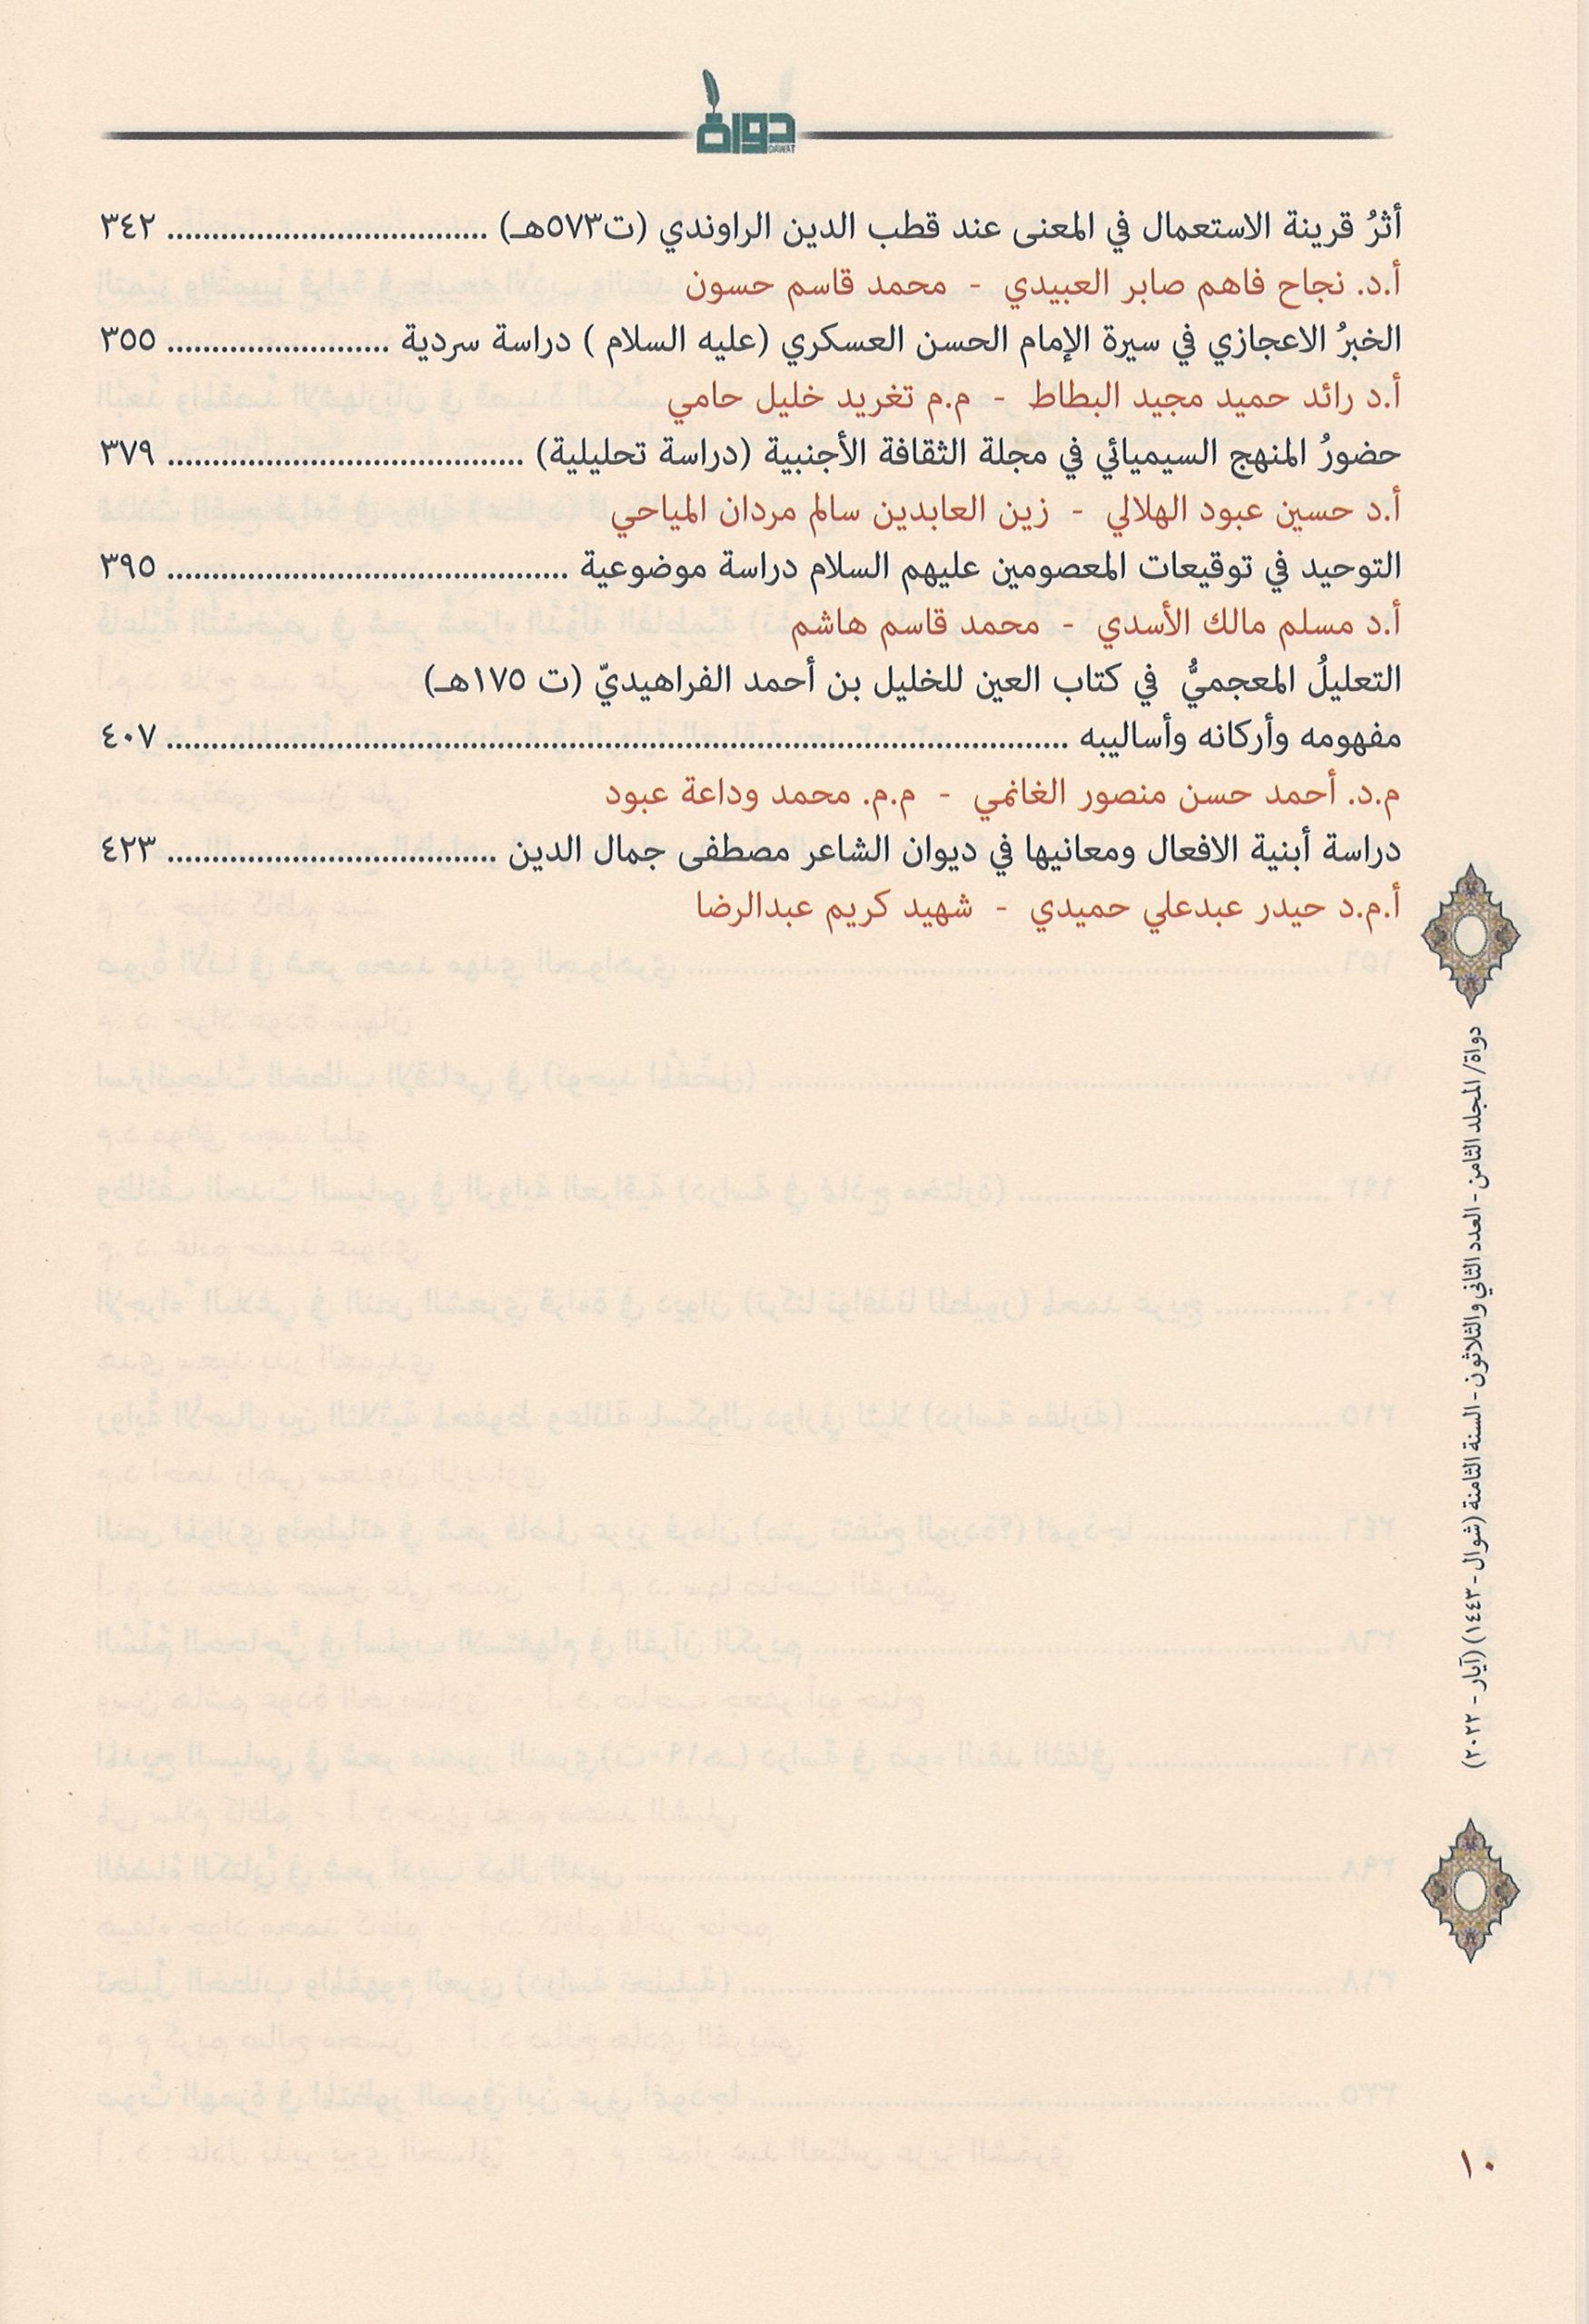 دواة
DAWAT
أثرُ قرينة الاستعمال في المعنى عند قطب الدين الراوندي (ت٥٧٣هـ) ........................................ ٣٤٢
أ.د. نجاح فاهم صابر العبيدي - محمد قاسم حسون
الخبرُ الاعجازي في سيرة الإمام الحسن العسكري (عليه السلام ) دراسة سردية ............................ ٣٥٥
أ.د رائد حميد مجيد البطاط - م.م تغريد خليل حامي
حضورُ المنهج السيميائي في مجلة الثقافة الأجنبية (دراسة تحليلية) ............................................. ٣٧٩
أ.د حسين عبود الهلالي - زين العابدين سالم مردان المياحي
التوحيد في توقيعات المعصومين عليهم السلام دراسة موضوعية .................................................. ٣٩٥
أ.د مسلم مالك الأسدي - محمد قاسم هاشم
التعليلُ المعجميُّ في كتاب العين للخليل بن أحمد الفراهيديّ (ت ١٧٥هـ)
مفهومه وأركانه وأساليبه ................................................................................................................ ٤٠٧
م.د. أحمد حسن منصور الغانمي - م.م. محمد وداعة عبود
دراسة أبنية الافعال ومعانيها في ديوان الشاعر مصطفى جمال الدين ......................................... ٤٢٣
أ.م.د حيدر عبدعلي حميدي - شهيد كريم عبدالرضا
دواة/ المجلد الثامن - العدد الثاني والثلاثون - السنة الثامنة (شوال - ١٤٤٣) (آيار - ٢٠٢٢)
١٠